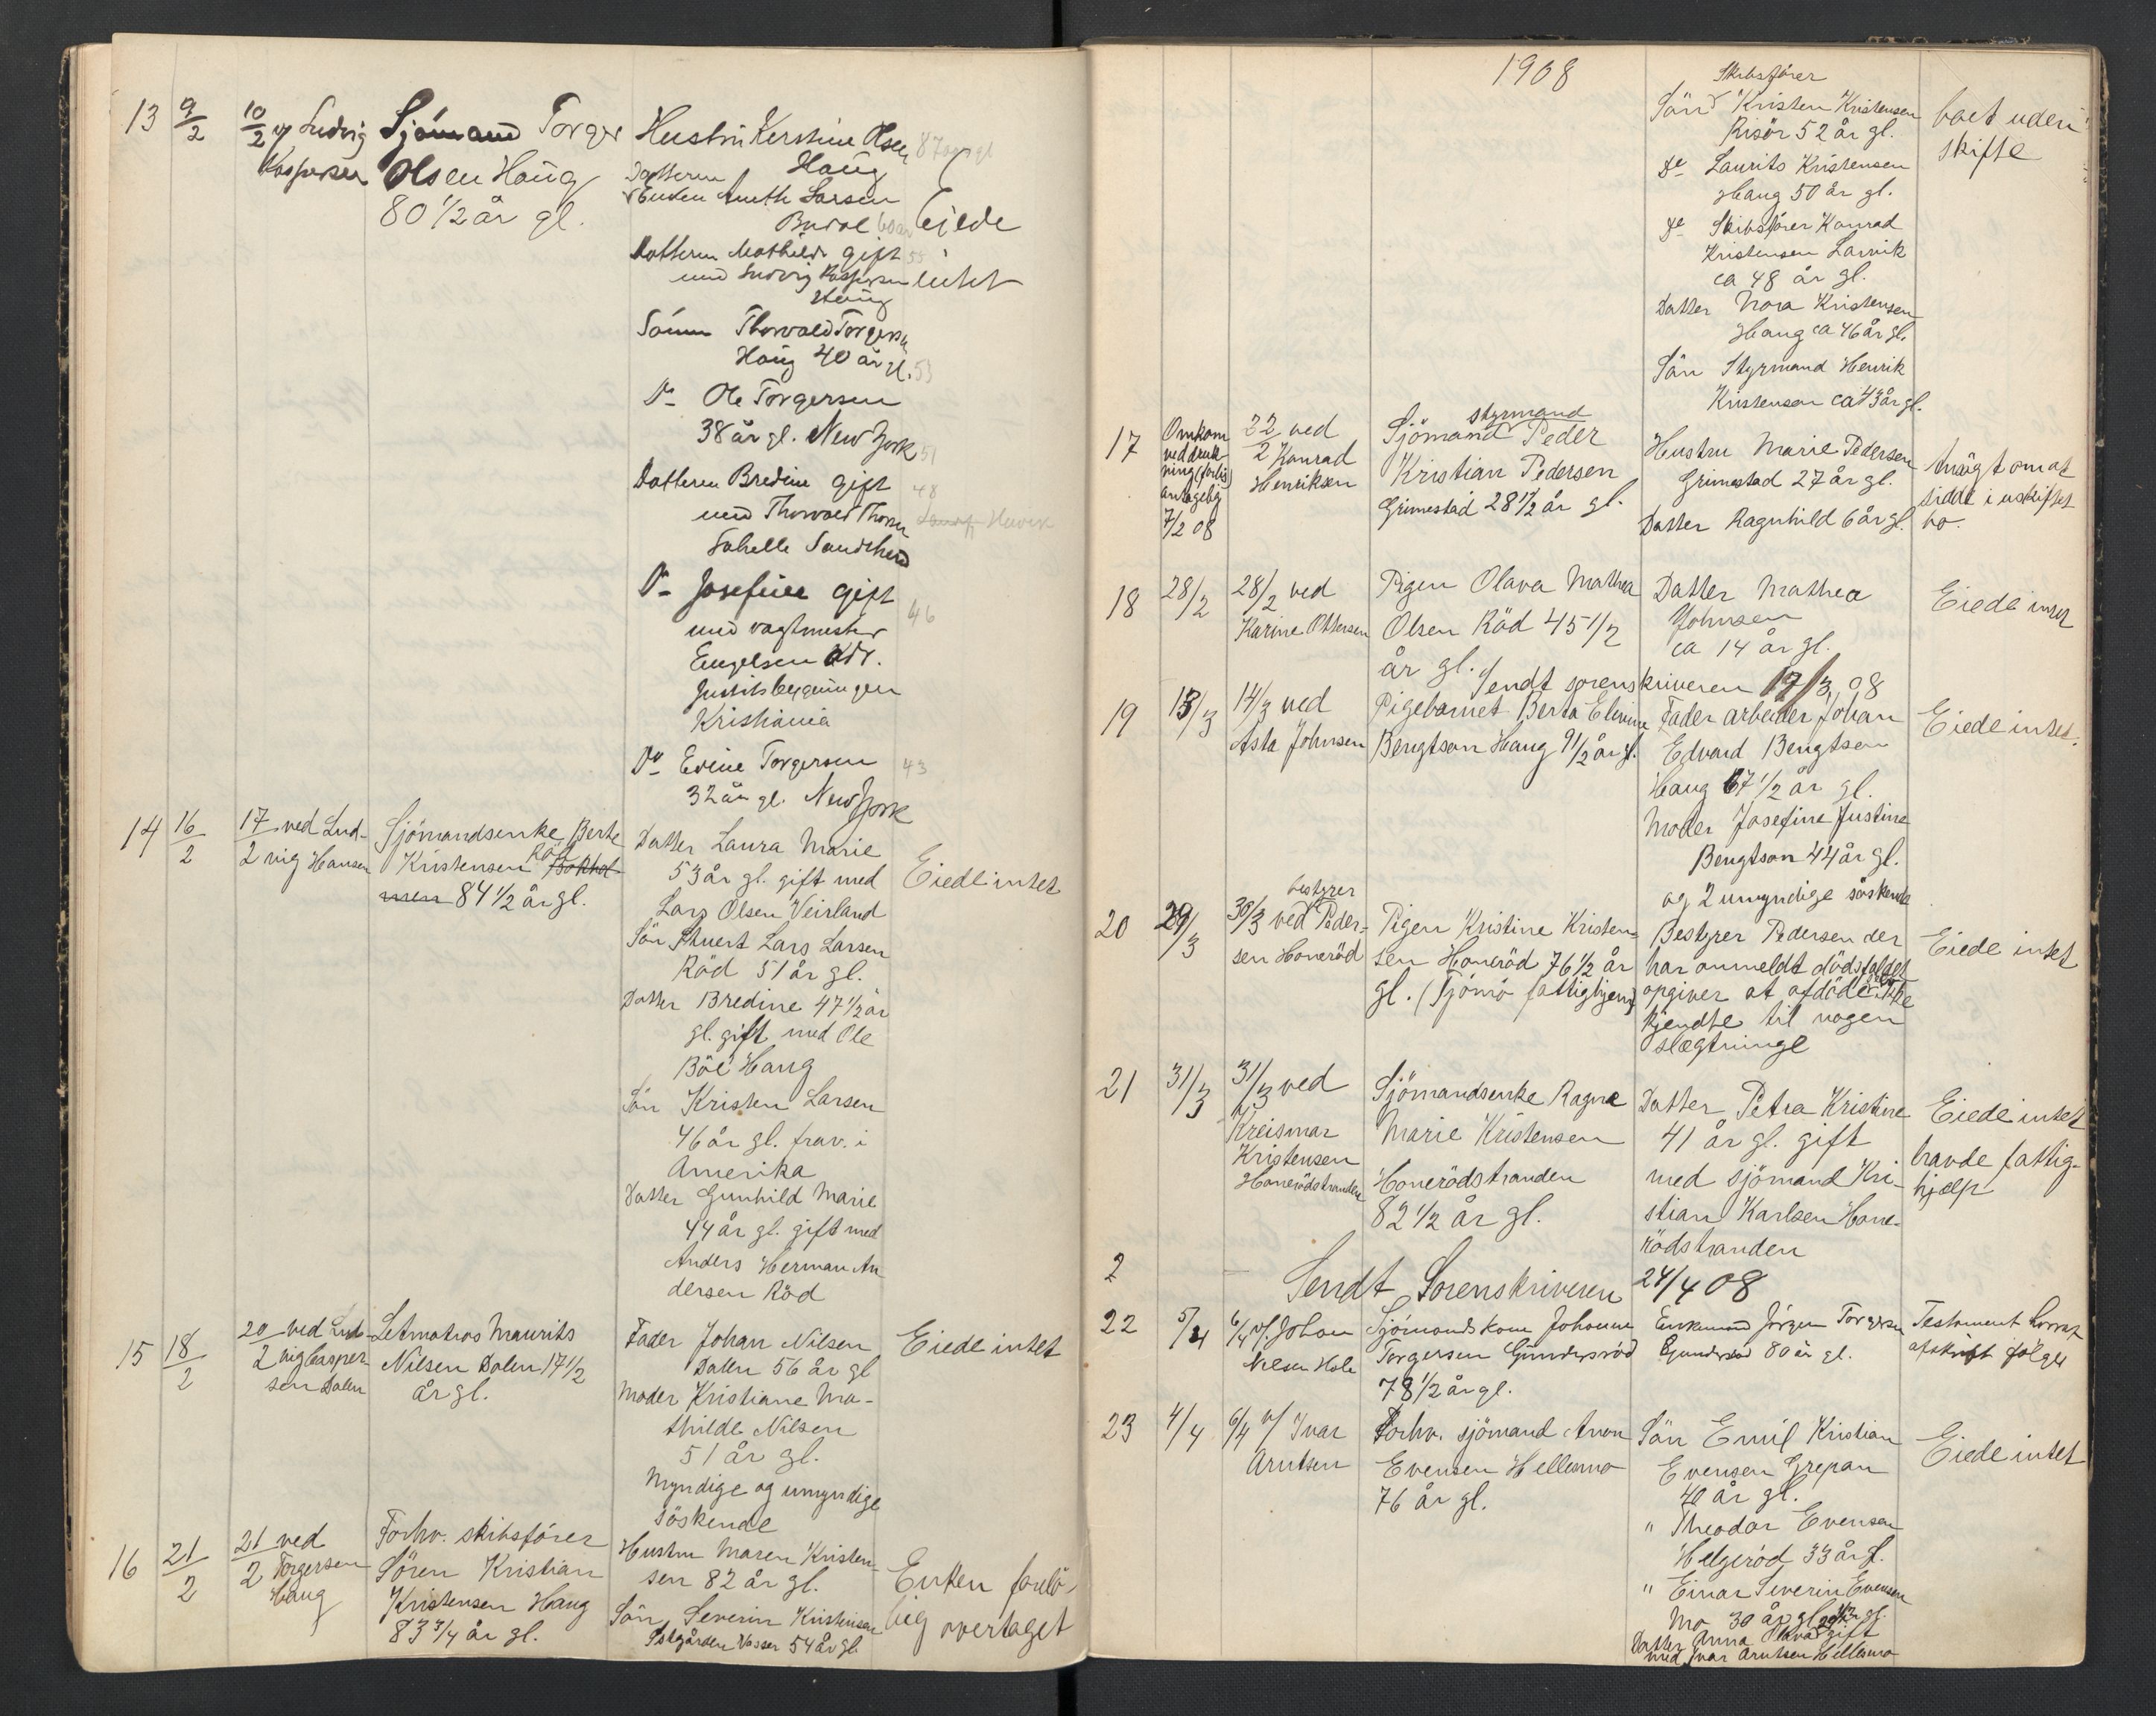 13 9/2 10/2 v/ Ludvig Kaspersen
Sjömand Torger
Olsen Haug
80 1/2 år gl.
Hustru Kerstine Olsen
Haug
Datteren
Enken Anethe Larsen
Datteren Mathilde gift
med Ludvig Kaspersen
Haug
Sönnen Thorvald Torgersen
Haug 40 år gl. 53
Do Ole Torgersen
38 år gl. New York 51
Datteren Bredine gift 48
med Thorvald Thorsen
Sandeherred
Do Josefine gift 46
med vagtmester
Engelsen
Justitsbygningen
Kristiania
Do Evine Torgersen 43
32 år gl. New York
Eiede
intet
14 16/2 17/2 ved Ludvig Hansen
Sjömandsenke Berte
Kristensen Röd
84 1/2 år gl.
Datter Laura Marie
53 år gl. gift med
Lars Olsen Veirland
Sön Stuert Lars Larsen
Röd 51 år gl.
Datter Bredine 47 1/2 år
gl. gift med Ole
Böe Haug
Sön Kristen Larsen
46 år gl. frav. i
Amerika
Datter Gunhild Marie
44 år gl. gift med
Anders Herman An
dersen Röd
Eiede intet
15 18/2 20/2 ved Lud-
vig Casper-
sen Dalen
Letmatros Maurits
Nilsen Dalen 17 1/2
år gl.
Fader Johan Nilsen
Dalen 56 år gl
Moder Kristiane Ma-
thilde Nilsen
51 år gl.
Myndige og umyndige
söskende
Eiede intet
16 21/2 21/2 ved
Torgersen
Haug
Forhv. skibsförer
Sören Kristian
Kristensen Haug
83 3/4 år gl.
Hustru Maren Kristen-
sen 82 år gl.
Sön Severin Kristensen
Vasser 54 år gl.
Enken forelö-
big overtaget
1908
Skibsförer
Sön Kristen Kristensen
Risör 52 år gl.
do Laurits Kristensen
Haug 50 år gl.
do Skibsförer Konrad
Kristensen Larvik
ca 48 år gl.
Datter Nora Kristensen
Haug ca 46 år gl.
Sön Styrmand Henrik
Kristensen ca 43 år gl.
boet uden
skifte
17 Omkom
ved druk-
ning (forlis)
antagelig
7/2 08
22/2 ved
Konrad
Henriksen
styrmand
Sjömand Peder
Kristian Pedersen
Grimestad 28 1/2 år gl.
Hustru Marie Pedersen
Grimestad 27 år gl.
Datter Ragnhild 6 år gl.
Ansögt om at
sidde i uskiftet
bo.
18 28/2 28/2 ved
Karine Ottersen
Pigen Olava Mathea
Olsen Röd 45 1/2
år gl.
Datter Mathea
Johnsen
ca 14 år gl.
Eiede intet
Sendt sorenskriveren 17/3 08
19 13/3 14/3 ved
Asta Johnsen
Pigebarnet Berta Elivine
Bengtson Haug 9 1/2 år gl.
Fader arbeider Johan
Edvard Bengtsen
Haug 67 1/2 år gl.
Moder Josefine Justine
Bengtson 44 år gl.
og 2 umyndige söskende
Eiede intet.
20 29/3 30/3 ved bestyrer
Peder-
sen Honeröd
Pigen Kristine Kristen-
sen Honeröd 76 1/2 år
gl. (Tjömö fattighjem)
Bestyrer Pedersen der
har anmeldt dödsfaldet
opgiver at afdöde ikke
kjendte til nogen
slægtninge
Eiede intet
21 31/3 31/3 ved
Kreismar
Kristensen
Honerödstranden
Sjömandsenke Ragne
Marie Kristensen
Honerödstranden
82 1/2 år gl.
Datter Petra Kristine
41 år gl. gift
med sjömand Kri-
stian Karlsen Hone-
rödstranden
Eiede intet
havde fattig-
hjælp
2
Sendt Sorenskriveren 24/4 08
22 5/4 6/4 v/ Johan
Nilsen Hole
Sjömandskone Johanne
Torgersen Gundersröd
78 1/2 år gl.
Enkemand Jörgen Torgersen
Gundersröd 80 år gl.
Testament hvoraf
afskrift fölger
23 4/4 6/4 v/ Ivar
Arntsen
Forhv. sjömand Aron
Evensen Hellesmo
76 år gl.
Sön Emil Kristian
Evensen Grepan
40 år gl.
" Theodor Evensen
Helgeröd 33 år gl.
" Einar Severin Evensen
Mo 30 år gl.
Datter Anna gift
med Ivar Arntsen Hellesmo
Eiede intet